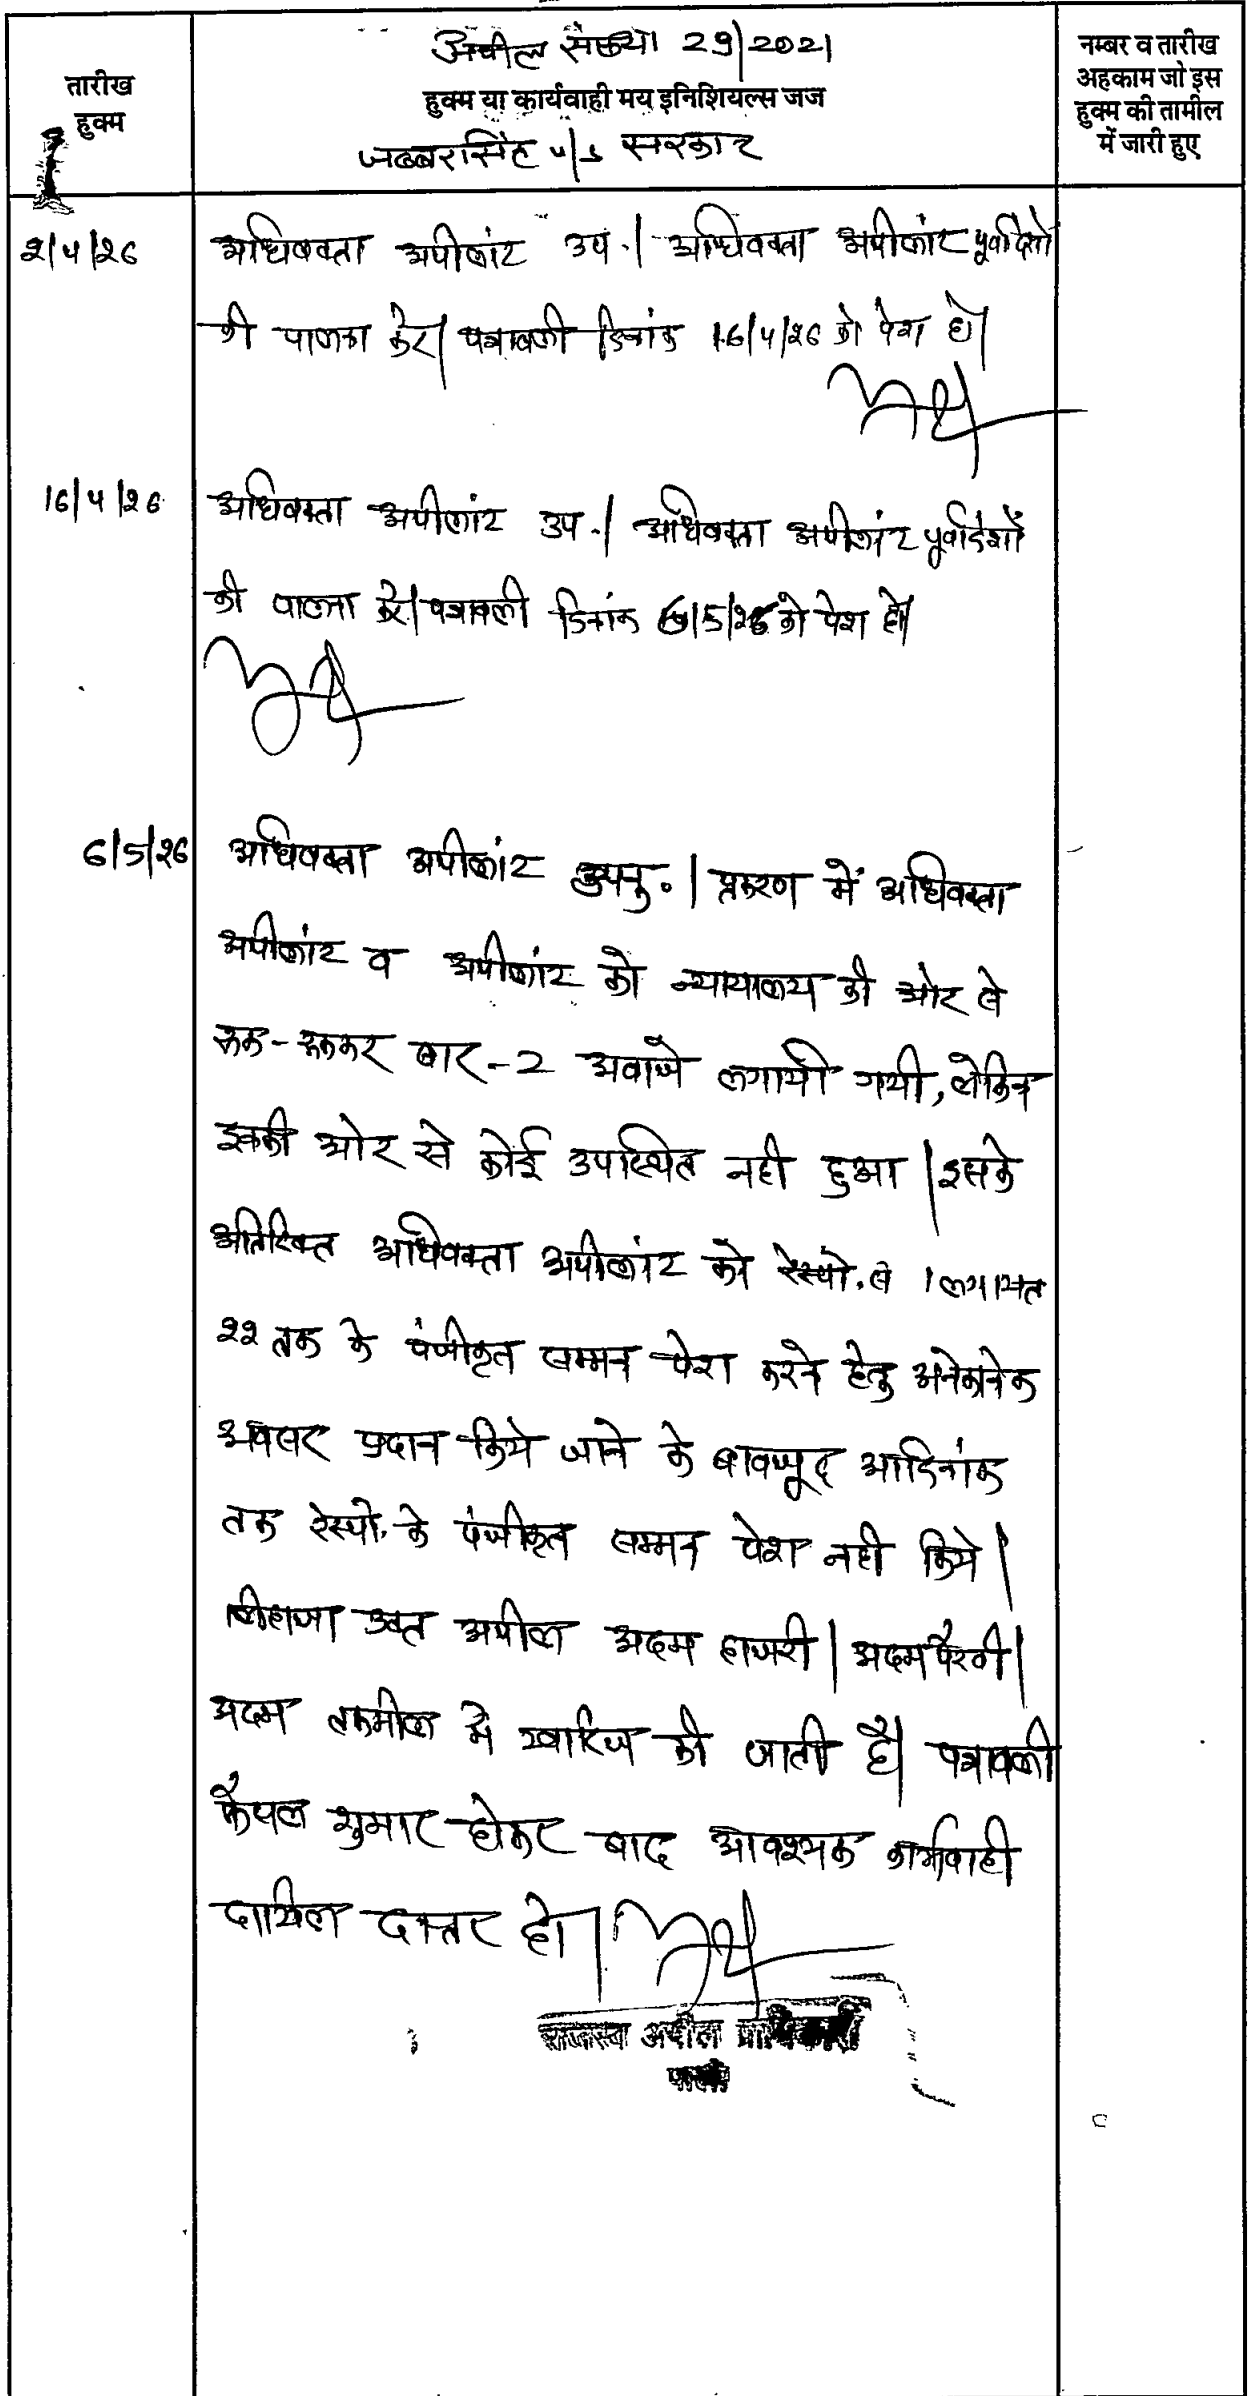 अपील संख्या 29/2021
तारीख
हुक्म
हुक्म या कार्यवाही मय इनिशियल्स जज
जब्बरसिंह v/s सरकार
नम्बर व तारीख
अहकाम जो इस
हुक्म की तामील
में जारी हुए
2/4/26
अधिवक्ता अपीलांट उप.। अधिवक्ता अपीलांट पूर्वादेशों
की पालना करें। पत्रावली दिनांक 16/4/26 को पेश हो।
16/4/26
अधिवक्ता अपीलांट उप.। अधिवक्ता अपीलांट पूर्वादेशों
की पालना करें। पत्रावली दिनांक 6/5/26 को पेश हो।
6/5/26
अधिवक्ता अपीलांट अनुप.। प्रकरण में अधिवक्ता
अपीलांट व अपीलांट को न्यायालय की ओर से
रूक-रूककर बार-2 अवाजे लगायी गयी, लेकिन
इनकी ओर से कोई उपस्थित नही हुआ। इसके
अतिरिक्त अधिवक्ता अपीलांट को रेस्पो. सं 1 लगायत
२२ तक के पंजीकृत सम्मन पेश करने हेतु अनेकानेक
अवसर प्रदान किये जाने के बावजूद आदिनांक
तक रेस्पो. के पंजीकृत सम्मन पेश नही किये।
लिहाजा उक्त अपील अदम हाजरी/अदम पैरवी/
अदम तकमील मे खारिज की जाती है। पत्रावली
फैसल शुमार होकर बाद आवश्यक कार्यवाही
दाखिल दफ्तर हो।
राजस्व अपील प्राधिकारी